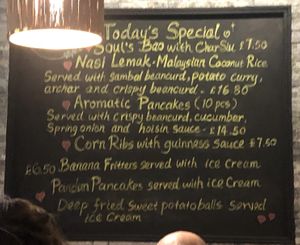 Today's Special
Soul's Bao with Char Siu £7.50
Nasi Lemak - Malaysian Coconut Rice
Served with sambal beancurd, potato curry,
archar and crispy beancurd. - £16.80
Aromatic Pancakes (10 pcs)
Served with crispy beancurd, cucumber,
Spring onion and hoisin sauce - £14.50
Corn Ribs with guinness sauce £7.50
£6.50 Banana Fritters served with ice cream
Pandan Pancakes served with ice cream
Deep fried sweet potato balls served
ice cream